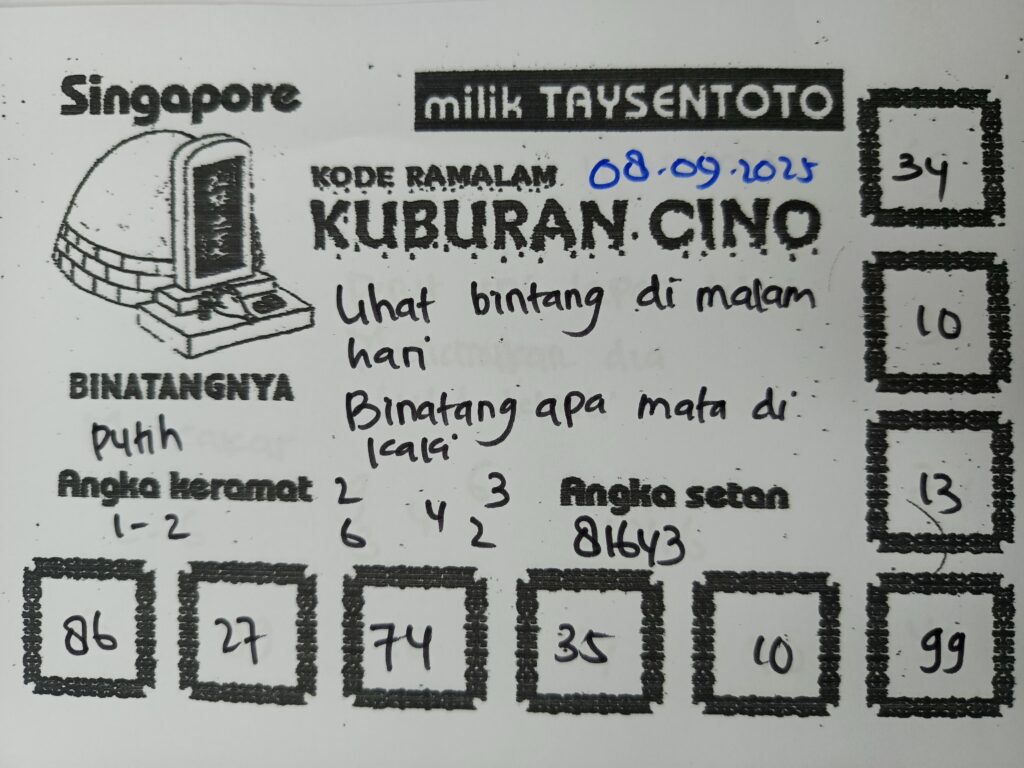 Singapore
milik TAYSENTOTO
KODE RAMALAM 08.09.2025
KUBURAN CINO
34
Lihat bintang di malam
hari
10
BINATANGNYA
putih
Binatang apa mata di
kaki
Angka keramat
1-2
2 3
4
6 2
Angka setan
81643
13
86 27 74 35 10 99